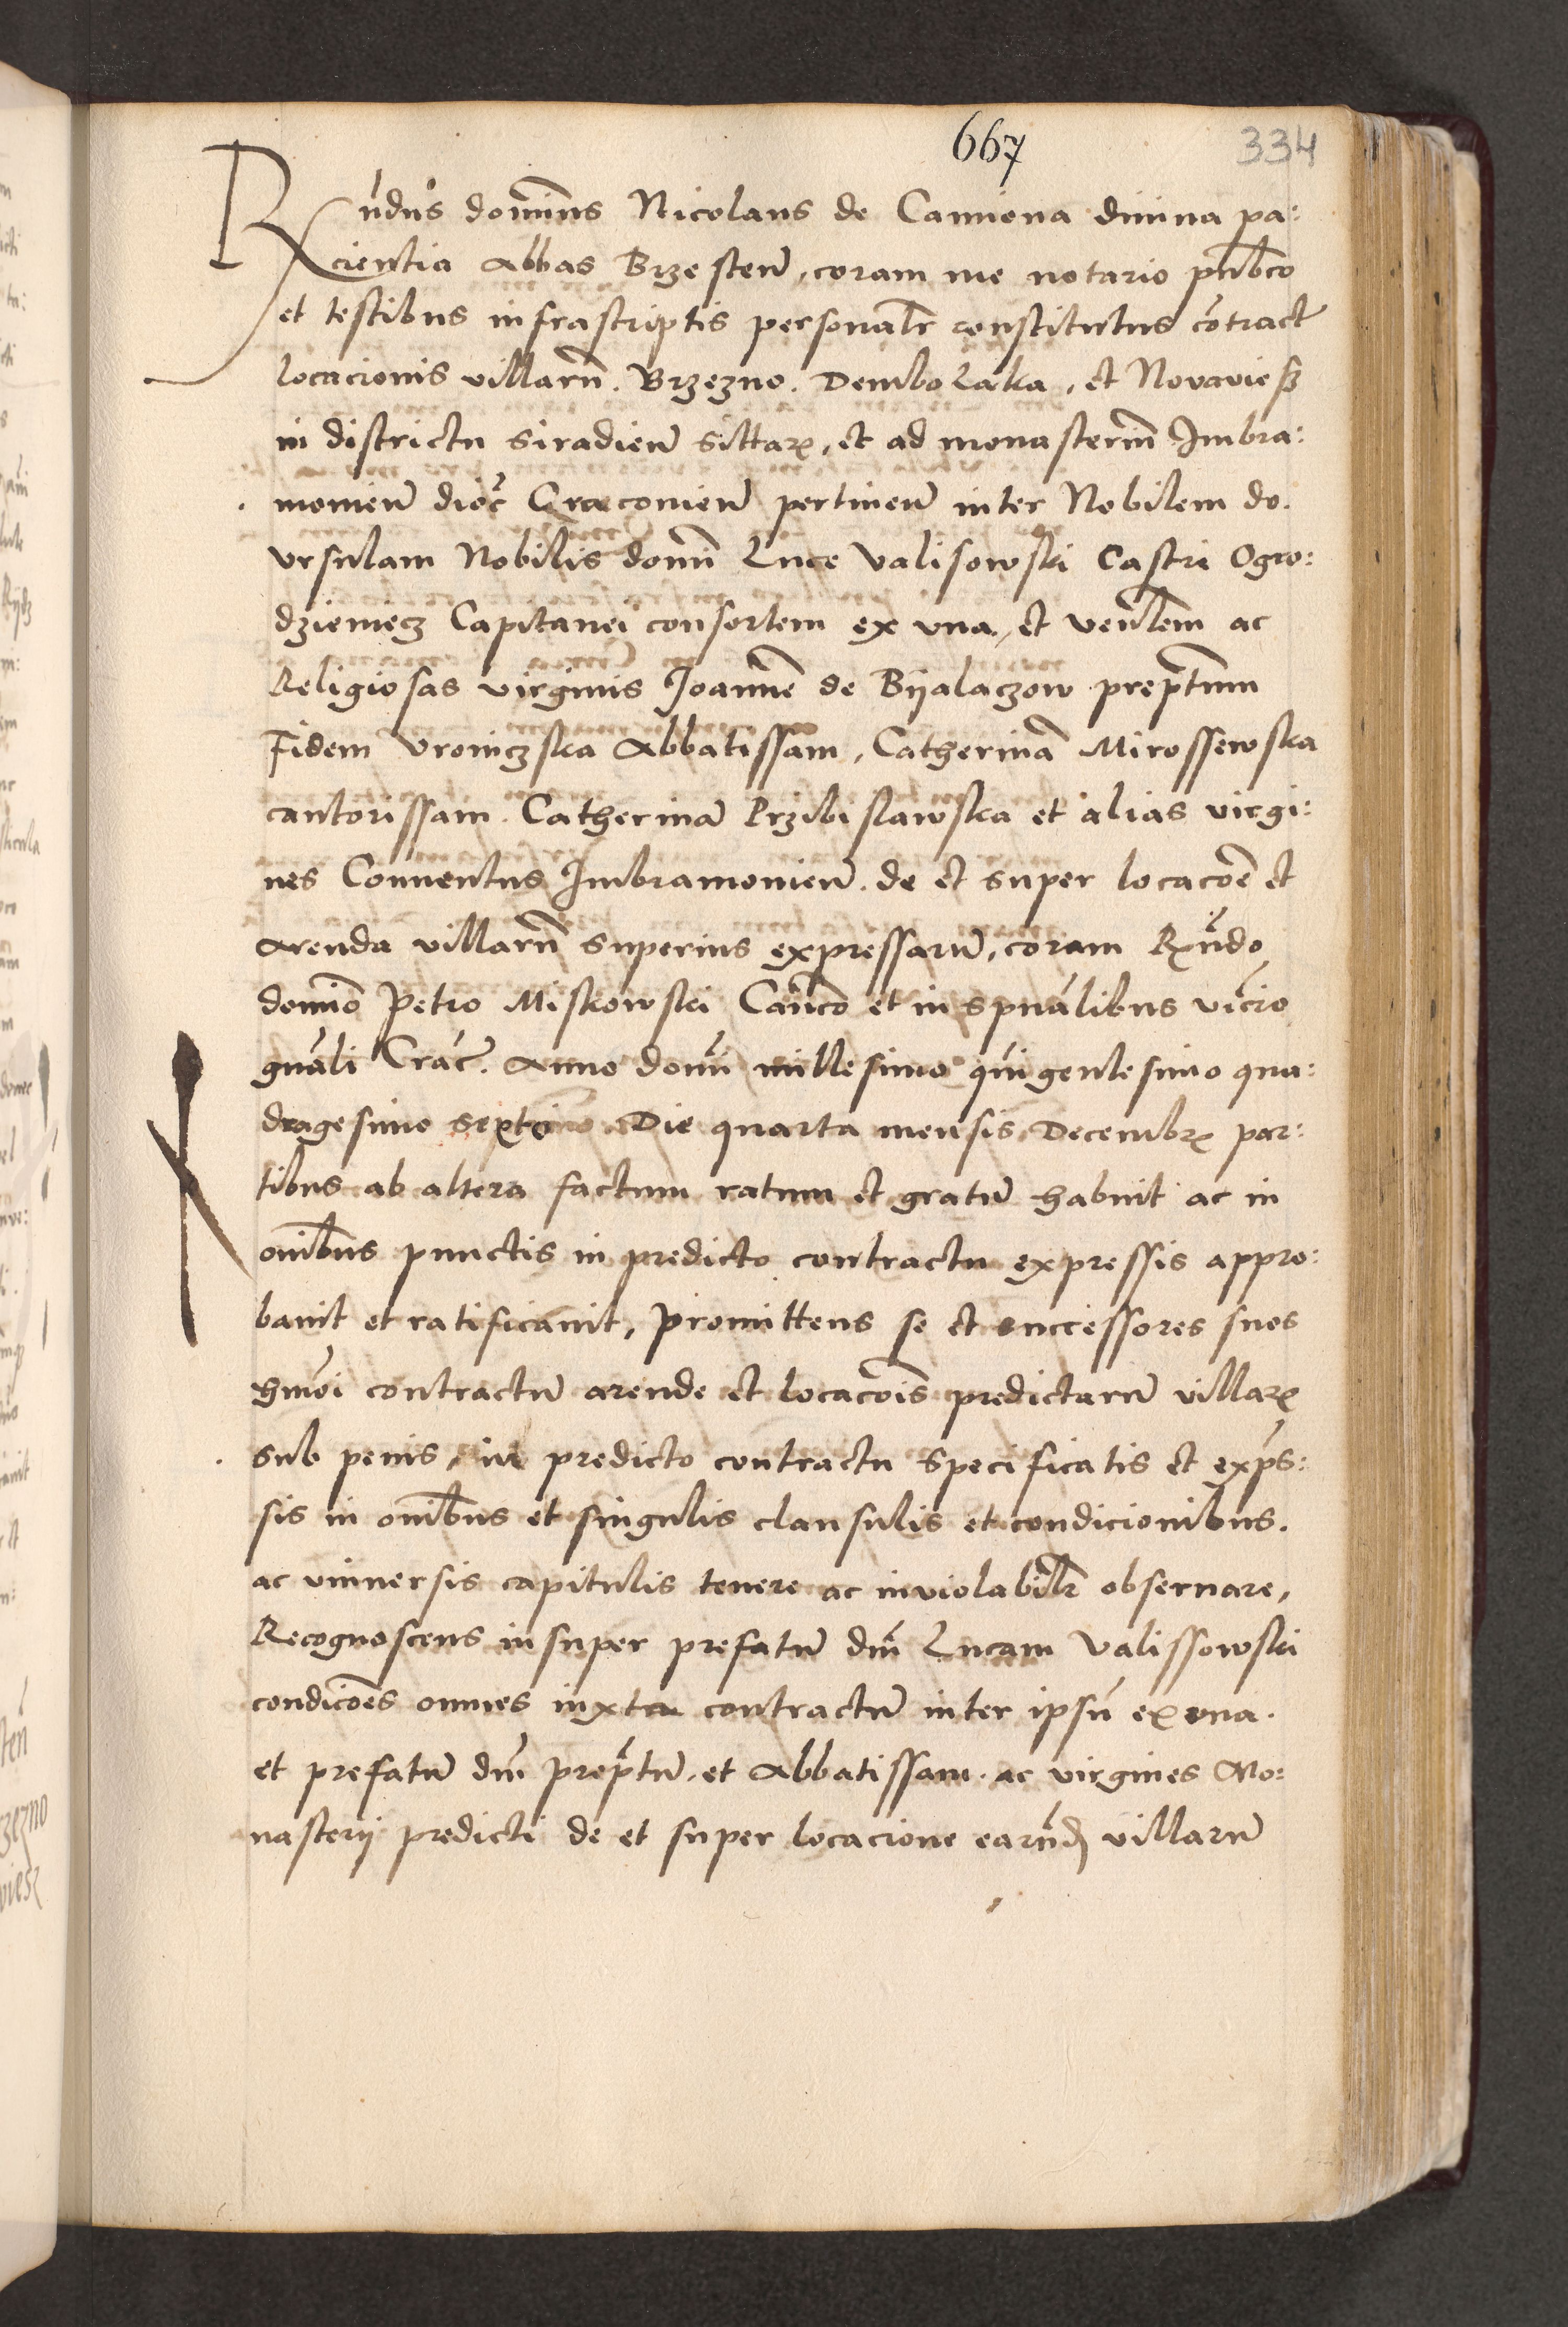 667 334
Rxndus dominus Nicolaus de Camiona diuina pa:
cientia Abbas Brzesteñ, coram me notario publico
et testibus infrascriptis personalr constitutus cotract
locacionis villaru. Brzezno. Dembolaka, et Novawiesz
in districtu Siradieñ sittar, et ad monasteriu Imbra:
monieñ dioc Cracouieñ pertineñ inter Nobilem do.
Vrsulam Nobilis domi Luce Valisowski Castri Ogro:
dzieniecz Capitanei consortem ex vna, et venlem ac
Religiosas virginis Joannē de Bijalaczow preptum
Fidem Wroniczska Abbatissam, Catherinā Mirossewska
cantorissam. Catherinā Przibislawska et alias virgi:
nes Conuentus Imbramonieñ. de et super locacoē et
arenda villarū superius expressarū, coram Rxndo
domio Petro Miskowski Canco et in spualibus vicrio
gnali Crac. Anno domi millesimo quigentesimo qua:
dragesimo septimo Die quarta mensis Decembr par:
tibus ab altera factum ratum et gratū habuit ac in
omibus punctis in predicto contractu expressis appro:
bauit et ratificauit, promittens se et successores suos
hmoi contractū arende et locacois predictarū villar
sub penis, in predicto contractu specificatis et exps:
sis in omibus et singulis clausulis et condicionibus.
ac vniuersis capitulis tenere ac inviolabilr obseruare,
Recognoscens insuper prefatū dm Lucam Valissowski
condicoēs omnes iuxta contractū inter ipsū ex vna.
et prefatū dm preptū, et Abbatissam. ac virgines Mo:
nasterij predicti de et super locacione earund villarū